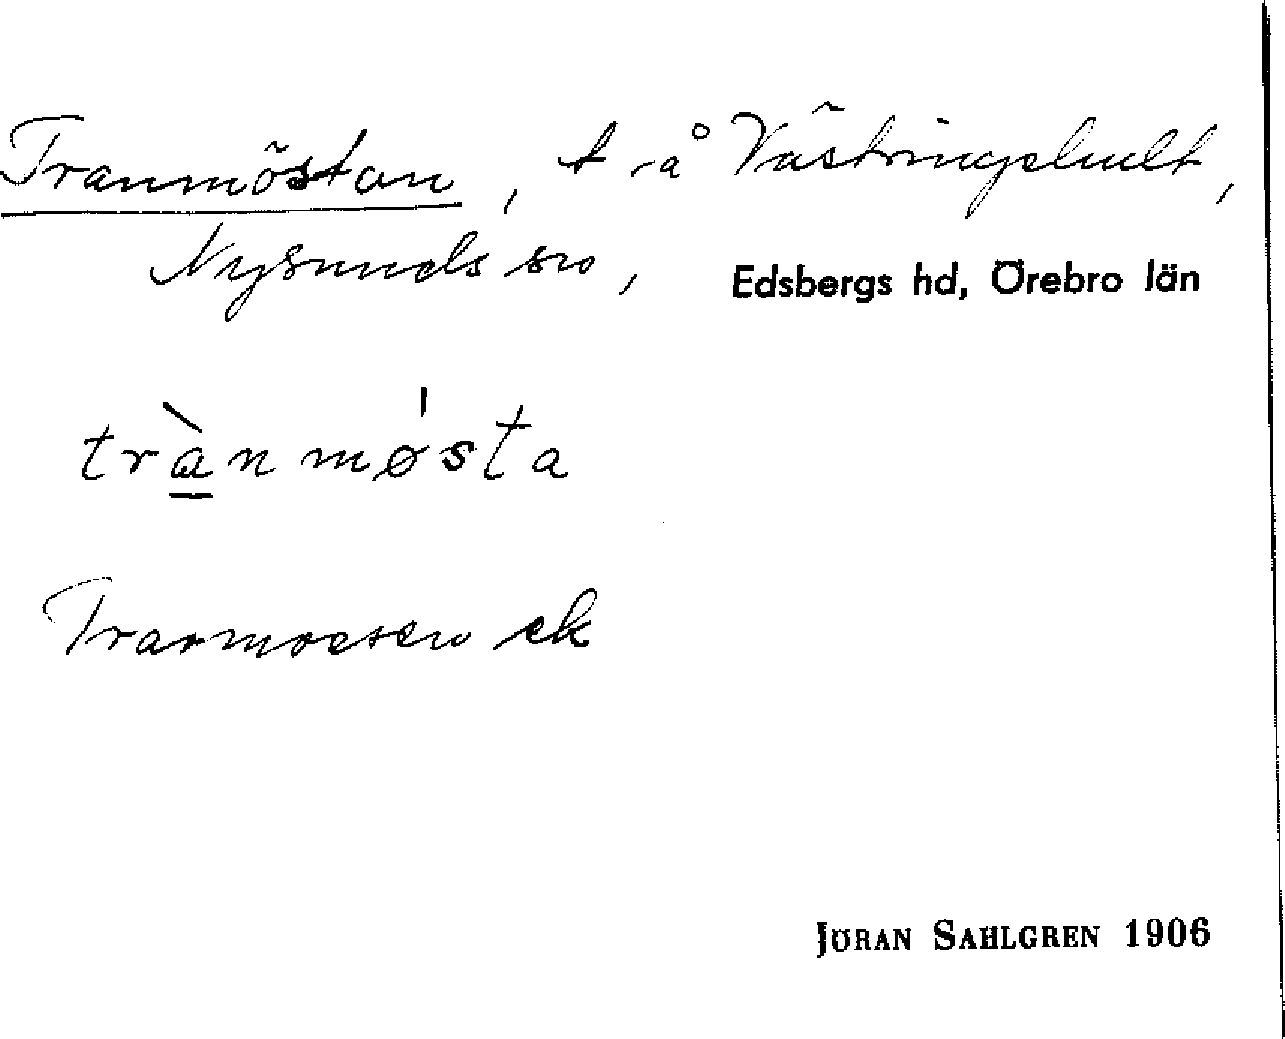 Tranmöstan, t på Västringshult,
Nysunds sn, Edsbergs hd, Örebro län
trànmǿsta
Tranmossen ek
JÖRAN SAHLGREN 1906